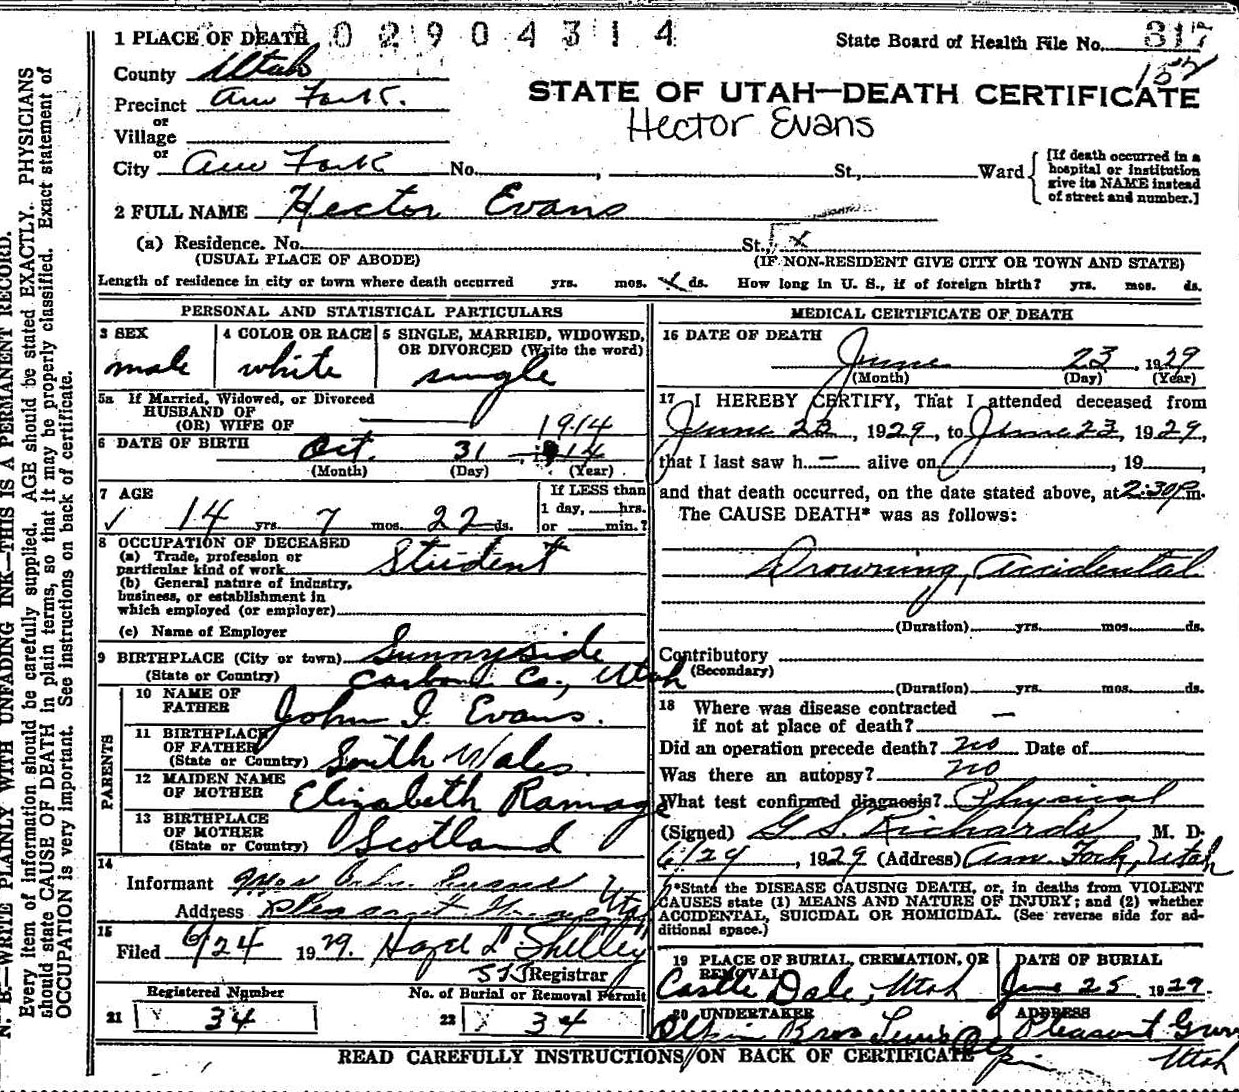 02904314
1 PLACE OF DEATH
State Board of Health File No. 317
152
County Utah
STATE OF UTAH—DEATH CERTIFICATE
Precinct Am Fork.
Hector Evans
or
Village
or
City Am Fork No. , St., Ward
[If death occurred in a hospital or institution give its NAME instead of street and number.]
2 FULL NAME Hector Evans
(a) Residence. No. St., x
(USUAL PLACE OF ABODE) (IF NON-RESIDENT GIVE CITY OR TOWN AND STATE)
Length of residence in city or town where death occurred yrs. mos. ds. How long in U. S., if of foreign birth? yrs. mos. ds.
PERSONAL AND STATISTICAL PARTICULARS
3 SEX
male
4 COLOR OR RACE
white
5 SINGLE, MARRIED, WIDOWED, OR DIVORCED (Write the word)
single
5a If Married, Widowed, or Divorced
HUSBAND OF
(OR) WIFE OF
1914
6 DATE OF BIRTH Oct. 31 14
(Month) (Day) (Year)
7 AGE
✓ 14 yrs. 7 mos. 22 ds.
If LESS than
1 day, hrs.
or min.?
8 OCCUPATION OF DECEASED
(a) Trade, profession or
particular kind of work Student
(b) General nature of industry,
business, or establishment in
which employed (or employer)
(c) Name of Employer
9 BIRTHPLACE (City or town) Sunnyside
(State or Country) Carbon Co., Utah
PARENTS
10 NAME OF
FATHER John I. Evans.
11 BIRTHPLACE
OF FATHER
(State or Country) South Wales.
12 MAIDEN NAME
OF MOTHER Elizabeth Ramage
13 BIRTHPLACE
OF MOTHER
(State or Country) Scotland
14
Informant
Address Pleasant Grove, Utah
15
Filed 6/24 1929. Hazel L. Shelley
Registrar
Registered Number
21 34
No. of Burial or Removal Permit
22 34
MEDICAL CERTIFICATE OF DEATH
16 DATE OF DEATH
June 23, 1929
(Month) (Day) (Year)
17 I HEREBY CERTIFY, That I attended deceased from
June 23, 1929, to June 23, 1929,
that I last saw h— alive on , 19 ,
and that death occurred, on the date stated above, at 2:30 P m.
The CAUSE DEATH* was as follows:
Drowning, Accidental
(Duration) yrs. mos. ds.
Contributory
(Secondary)
(Duration) yrs. mos. ds.
18 Where was disease contracted
if not at place of death? —
Did an operation precede death? no Date of
Was there an autopsy? no
What test confirmed diagnosis? Physical
(Signed) G. S. Richards, M. D.
6/24, 1929 (Address) Am Fork, Utah
*State the DISEASE CAUSING DEATH, or, in deaths from VIOLENT
CAUSES state (1) MEANS AND NATURE OF INJURY; and (2) whether
ACCIDENTAL, SUICIDAL OR HOMICIDAL. (See reverse side for ad-
ditional space.)
19 PLACE OF BURIAL, CREMATION, OR
REMOVAL
Castle Dale, Utah
DATE OF BURIAL
June 25, 1929.
20 UNDERTAKER
Olpin Bros Lewis Olpin
ADDRESS
Pleasant Grove
Utah
READ CAREFULLY INSTRUCTIONS ON BACK OF CERTIFICATE
N. B.—WRITE PLAINLY WITH UNFADING INK—THIS IS A PERMANENT RECORD.
Every item of information should be carefully supplied. AGE should be stated EXACTLY. PHYSICIANS
should state CAUSE OF DEATH in plain terms, so that it may be properly classified. Exact statement of
OCCUPATION is very important. See instructions on back of certificate.